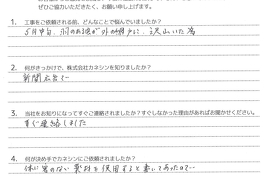 ぜひご協力いただきたく、お願い申し上げます。
1. 工事をご依頼される前、どんなことで悩んでいましたか？
5月中旬、羽のあるありが外の網戸に、沢山いた為
2. 何がきっかけで、株式会社カネシンを知りましたか？
新聞広告で
3. 当社をお知りになってすぐご連絡されましたか？すぐしなかった理由があればお聞かせください。
すぐ連絡しました
4. 何が決め手でカネシンにご依頼されましたか？
体に害のない薬剤を使用すると書いてあったので…